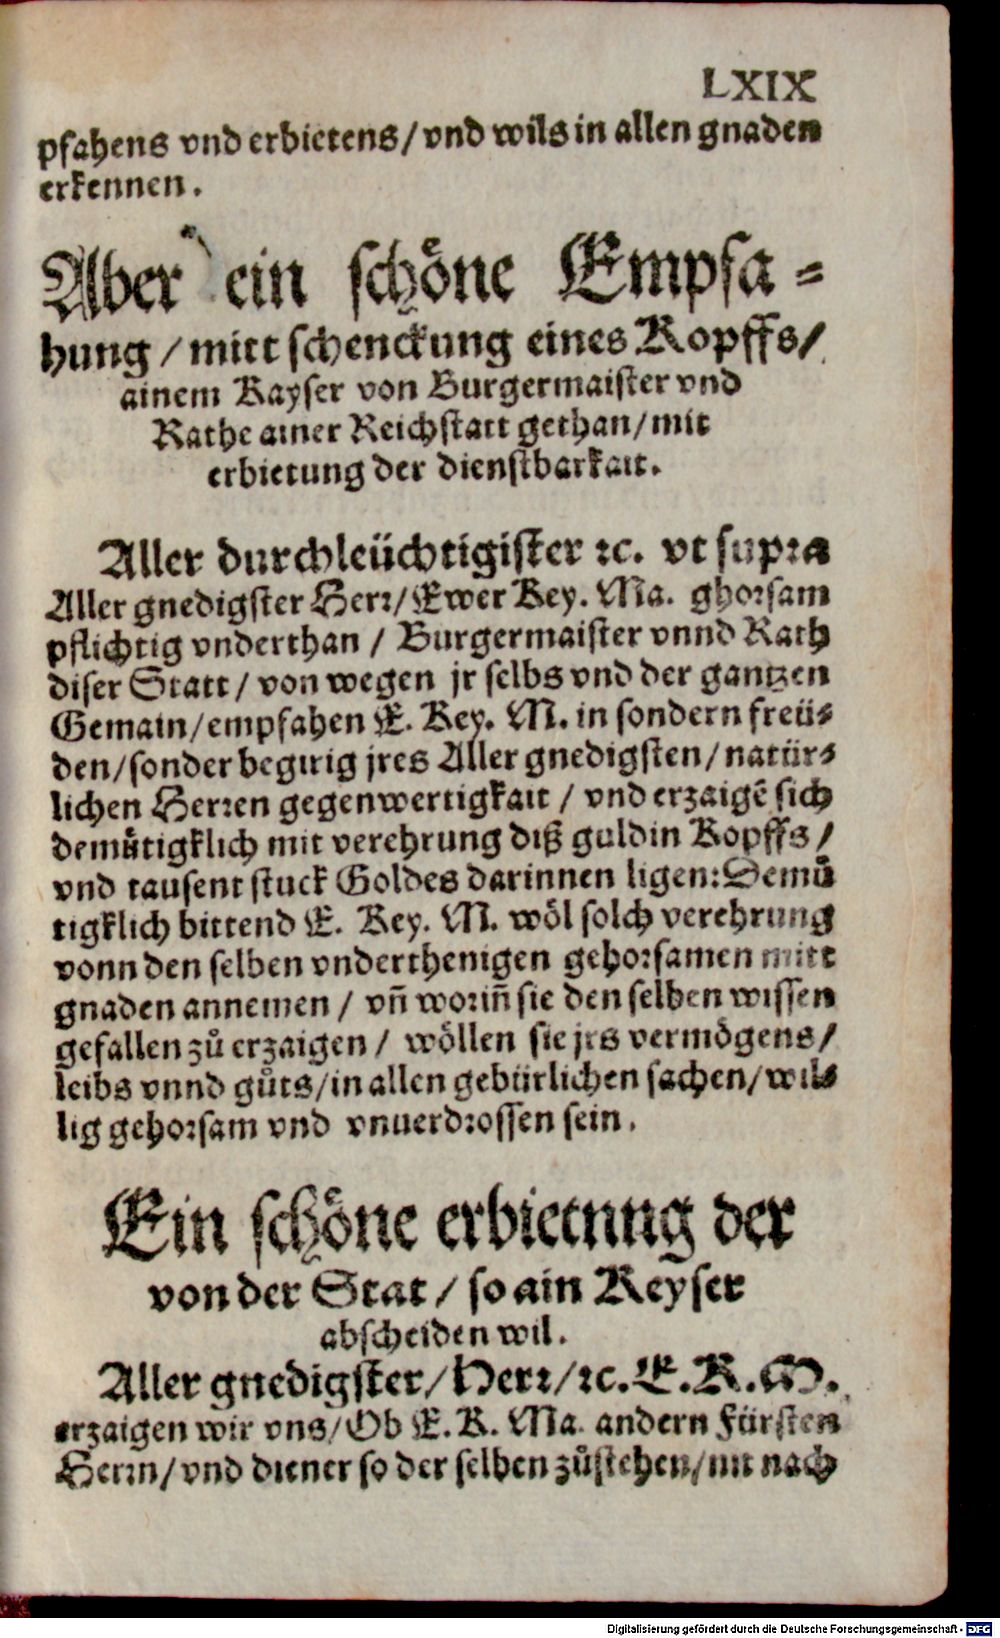 LXIX
pfahens vnd erbietens/vnd wils in allen gnaden
erkennen.
Aber ein schöne Empfa-
hung/mitt schenckung eines Kopffs/
ainem Kayser von Burgermaister vnd
Rathe ainer Reichstatt gethan/mit
erbietung der dienstbarkait.
Aller durchleüchtigister ꝛc. vt supꝛa
Aller gnedigster Herꝛ/Ewer Key. Ma. ghoꝛsam
pflichtig vnderthan / Burgermaister vnnd Rath
diser Statt/von wegen jr selbs vnd der gantzen
Gemain/empfahen E. Key. M. in sondern freü-
den/sonder begirig jres Aller gnedigsten/natür-
lichen Herꝛen gegenwertigkait / vnd erzaigẽ sich
demuͤtigklich mit verehrung diß guldin Kopffs /
vnd tausent stuck Goldes darinnen ligen:Demuͤ
tigklich bittend E. Key. M. wöl solch verehrung
vonn den selben vnderthenigen gehoꝛsamen mitt
gnaden annemen / vñ woꝛiñ sie den selben wissen
gefallen zů erzaigen / wöllen sie jrs vermögens/
leibs vnnd gůts/in allen gebürlichen sachen/wil-
lig gehoꝛsam vnd vnuerdꝛossen sein.
Ein schöne erbietnng der
von der Stat / so ain Keyser
abscheiden wil.
Aller gnedigster/Herꝛ/ꝛc.E.K.M.
erzaigen wir vns/Ob E.K. Ma. andern Fürsten
Herꝛn/vnd diener so der selben zůstehen/nit nach
Digitalisierung gefördert durch die Deutsche Forschungsgemeinschaft - DFG